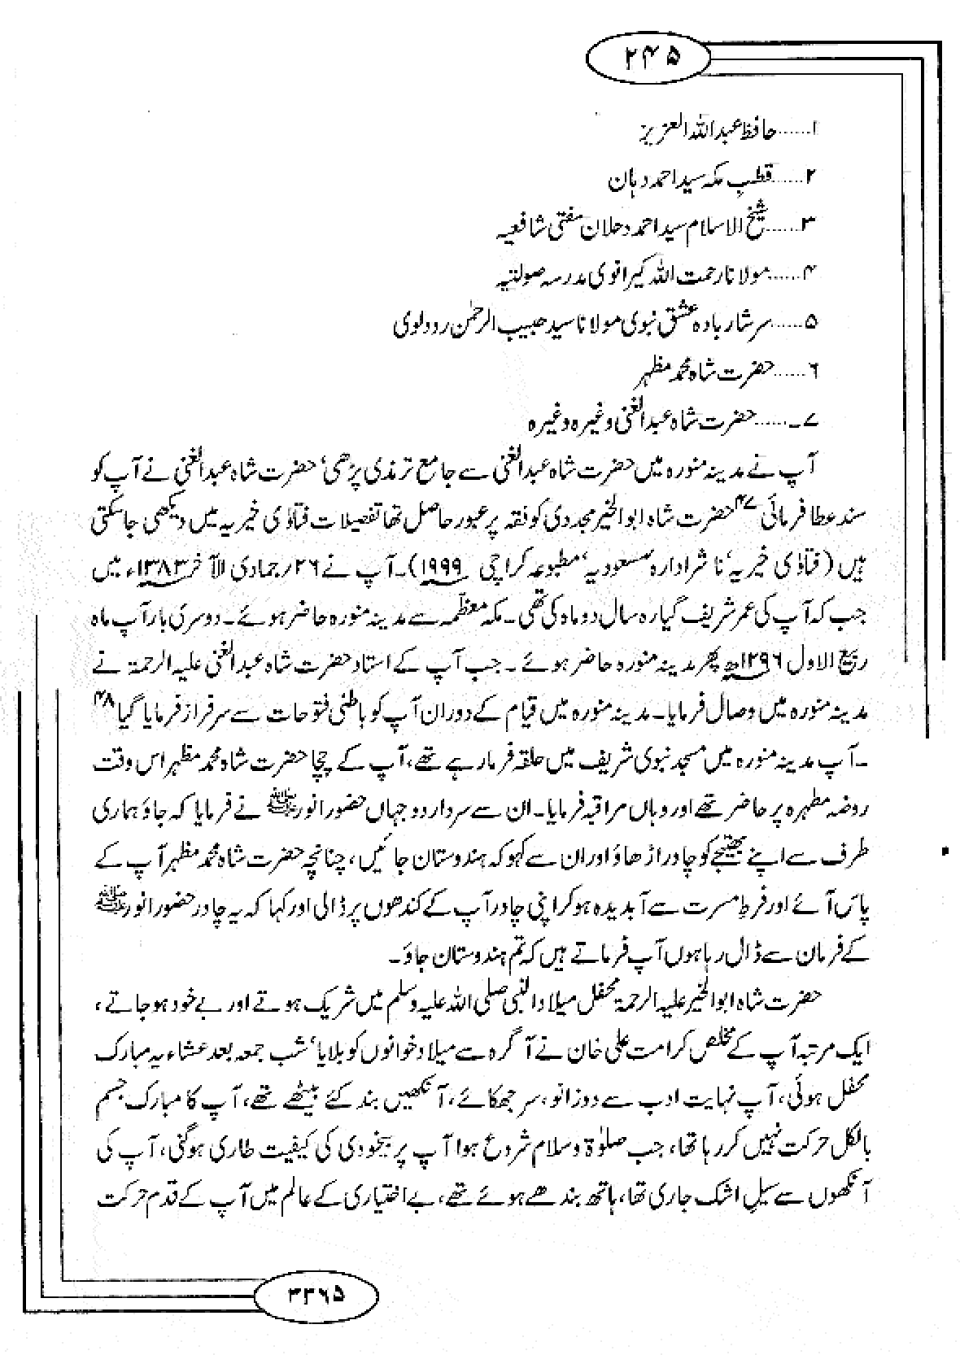 ۲۴۵
۱......حافظ عبداللہ العزیز
۲......قطبِ مکہ سید احمد دہان
۳......شیخ الاسلام سید احمد دحلان مفتی شافعیہ
۴......مولانا رحمت اللہ کیرانوی مدرسہ صولتیہ
۵......سرشار بادہ عشق نبوی مولانا سید حبیب الرحمٰن رودلوی
۶......حضرت شاہ محمد مظہر
۷۔......حضرت شاہ عبدالغنی وغیرہ وغیرہ
آپ نے مدینہ منورہ میں حضرت شاہ عبدالغنی سے جامع ترمذی پڑھی‘ حضرت شاہ عبدالغنی نے آپ کو
سند عطا فرمائی۴۷ حضرت شاہ ابوالخیر مجددی کو فقہ پر عبور حاصل تھا تفصیلات فتاوٰی خیریہ میں دیکھی جاسکتی
ہیں (فتاوٰی خیریہ‘ ناشر ادارہ مسعودیہ‘ مطبوعہ کراچی ۱۹۹۹)۔ آپ نے ۲۶؍جمادی الآخر ۱۳۸۳ء میں
جب کہ آپ کی عمر شریف گیارہ سال دو ماہ کی تھی۔ مکہ معظّمہ سے مدینہ منورہ حاضر ہوئے۔ دوسری بار آپ ماہ
ربیع الاول ۱۲۹۶ھ پھر مدینہ منورہ حاضر ہوئے۔ جب آپ کے استاد حضرت شاہ عبدالغنی علیہ الرحمۃ نے
مدینہ منورہ میں وصال فرمایا۔ مدینہ منورہ میں قیام کے دوران آپ کو باطنی فتوحات سے سرفراز فرمایا گیا۴۸
۔ آپ مدینہ منورہ میں مسجد نبوی شریف میں حلقہ فرمارہے تھے، آپ کے چچا حضرت شاہ محمد مظہر اس وقت
روضہ مطہرہ پر حاضر تھے اور وہاں مراقبہ فرمایا۔ ان سے سردار دوجہاں حضور انور ﷺ نے فرمایا کہ جاؤ ہماری
طرف سے اپنے بھتیجے کو چادر اڑھاؤ اور ان سے کہو کہ ہندوستان جائیں، چنانچہ حضرت شاہ محمد مظہر آپ کے
پاس آئے اور فرطِ مسرت سے آبدیدہ ہوکر اپنی چادر آپ کے کندھوں پر ڈالی اور کہا کہ یہ چادر حضور انور ﷺ
کے فرمان سے ڈال رہا ہوں آپ فرماتے ہیں کہ تم ہندوستان جاؤ۔
حضرت شاہ ابوالخیر علیہ الرحمۃ محفل میلاد النبی صلی اللہ علیہ وسلم میں شریک ہوتے اور بے خود ہوجاتے،
ایک مرتبہ آپ کے مخلص کرامت علی خان نے آگرہ سے میلاد خوانوں کو بلایا‘ شب جمعہ بعد عشاء یہ مبارک
محفل ہوئی، آپ نہایت ادب سے دوزانو، سرجھکائے، آنکھیں بند کئے بیٹھے تھے، آپ کا مبارک جسم
بالکل حرکت نہیں کررہا تھا، جب صلوٰۃ وسلام شروع ہوا آپ پر بیخودی کی کیفیت طاری ہوگئی، آپ کی
آنکھوں سے سیل اشک جاری تھا، ہاتھ بندھے ہوئے تھے، بے اختیاری کے عالم میں آپ کے قدم حرکت
۳۳۶۵